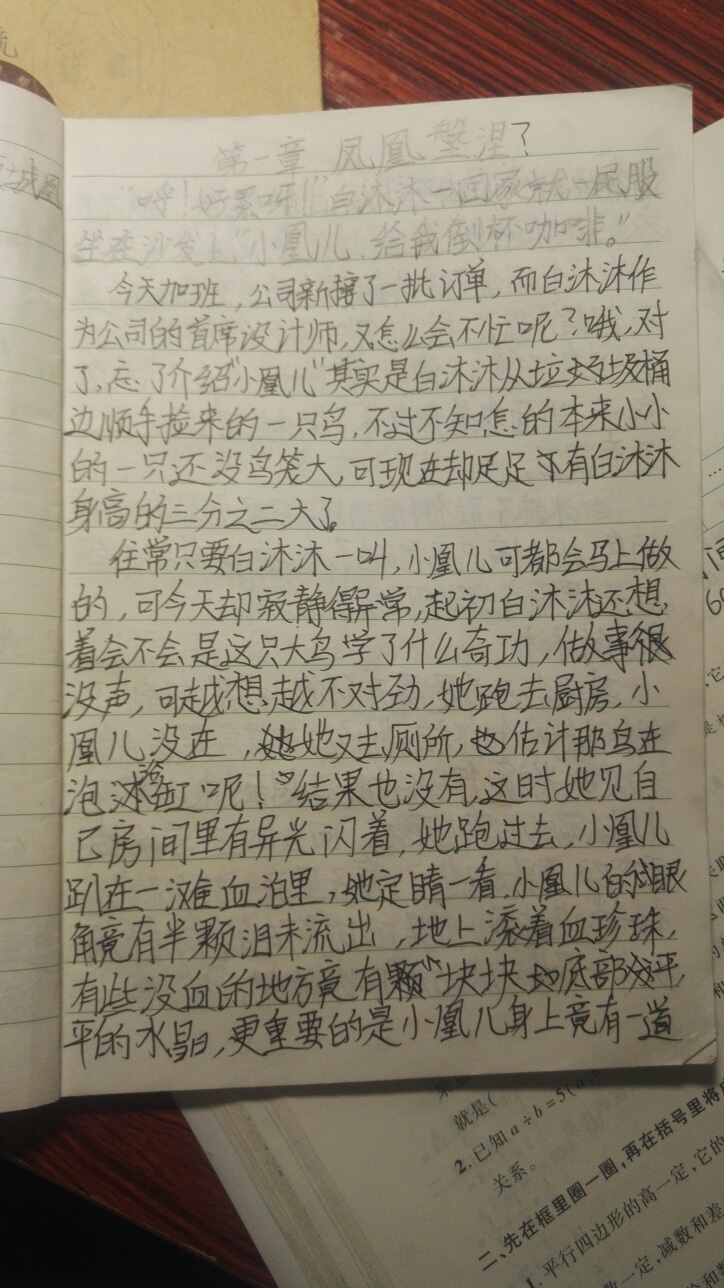 第一章 凤凰槃涅?
"呼!好累呀!"白沐沐一回家就一屁股
坐在沙发上"小凰儿,给我倒杯咖啡。"
今天加班,公司新接了一批订单,而白沐沐作
为公司的首席设计师,又怎么会不忙呢?哦,对
了,忘了介绍"小凰儿"其实是白沐沐从垃圾桶
边顺手捡来的一只鸟,不过不知怎的本来小小
的一只还没鸟笼大,可现在却足足有白沐沐
身高的三分之二大了。
往常只要白沐沐一叫,小凰儿可都会马上做
的,可今天却寂静得异常,起初白沐沐还想
着会不会是这只大鸟学了什么奇功,做事很
没声,可越想越不对劲,她跑去厨房,小
凰儿没在,她又去厕所,估计那鸟在
泡浴缸呢!"结果也没有,这时她见自
己房间里有异光闪着,她跑过去,小凰儿
趴在一滩血泊里,她定睛一看,小凰儿的眼
角竟有半颗泪未流出,地上滚着血珍珠,
有些没血的地方竟有颗块块如底部
平的水晶,更重要的是小凰儿身上竟有一道
就是(
2.已知a÷b=5(a、b
关系。
二、先在框里圈一圈,再在括号里将
1.平行四边形的高一定,它的
一定,减数和差